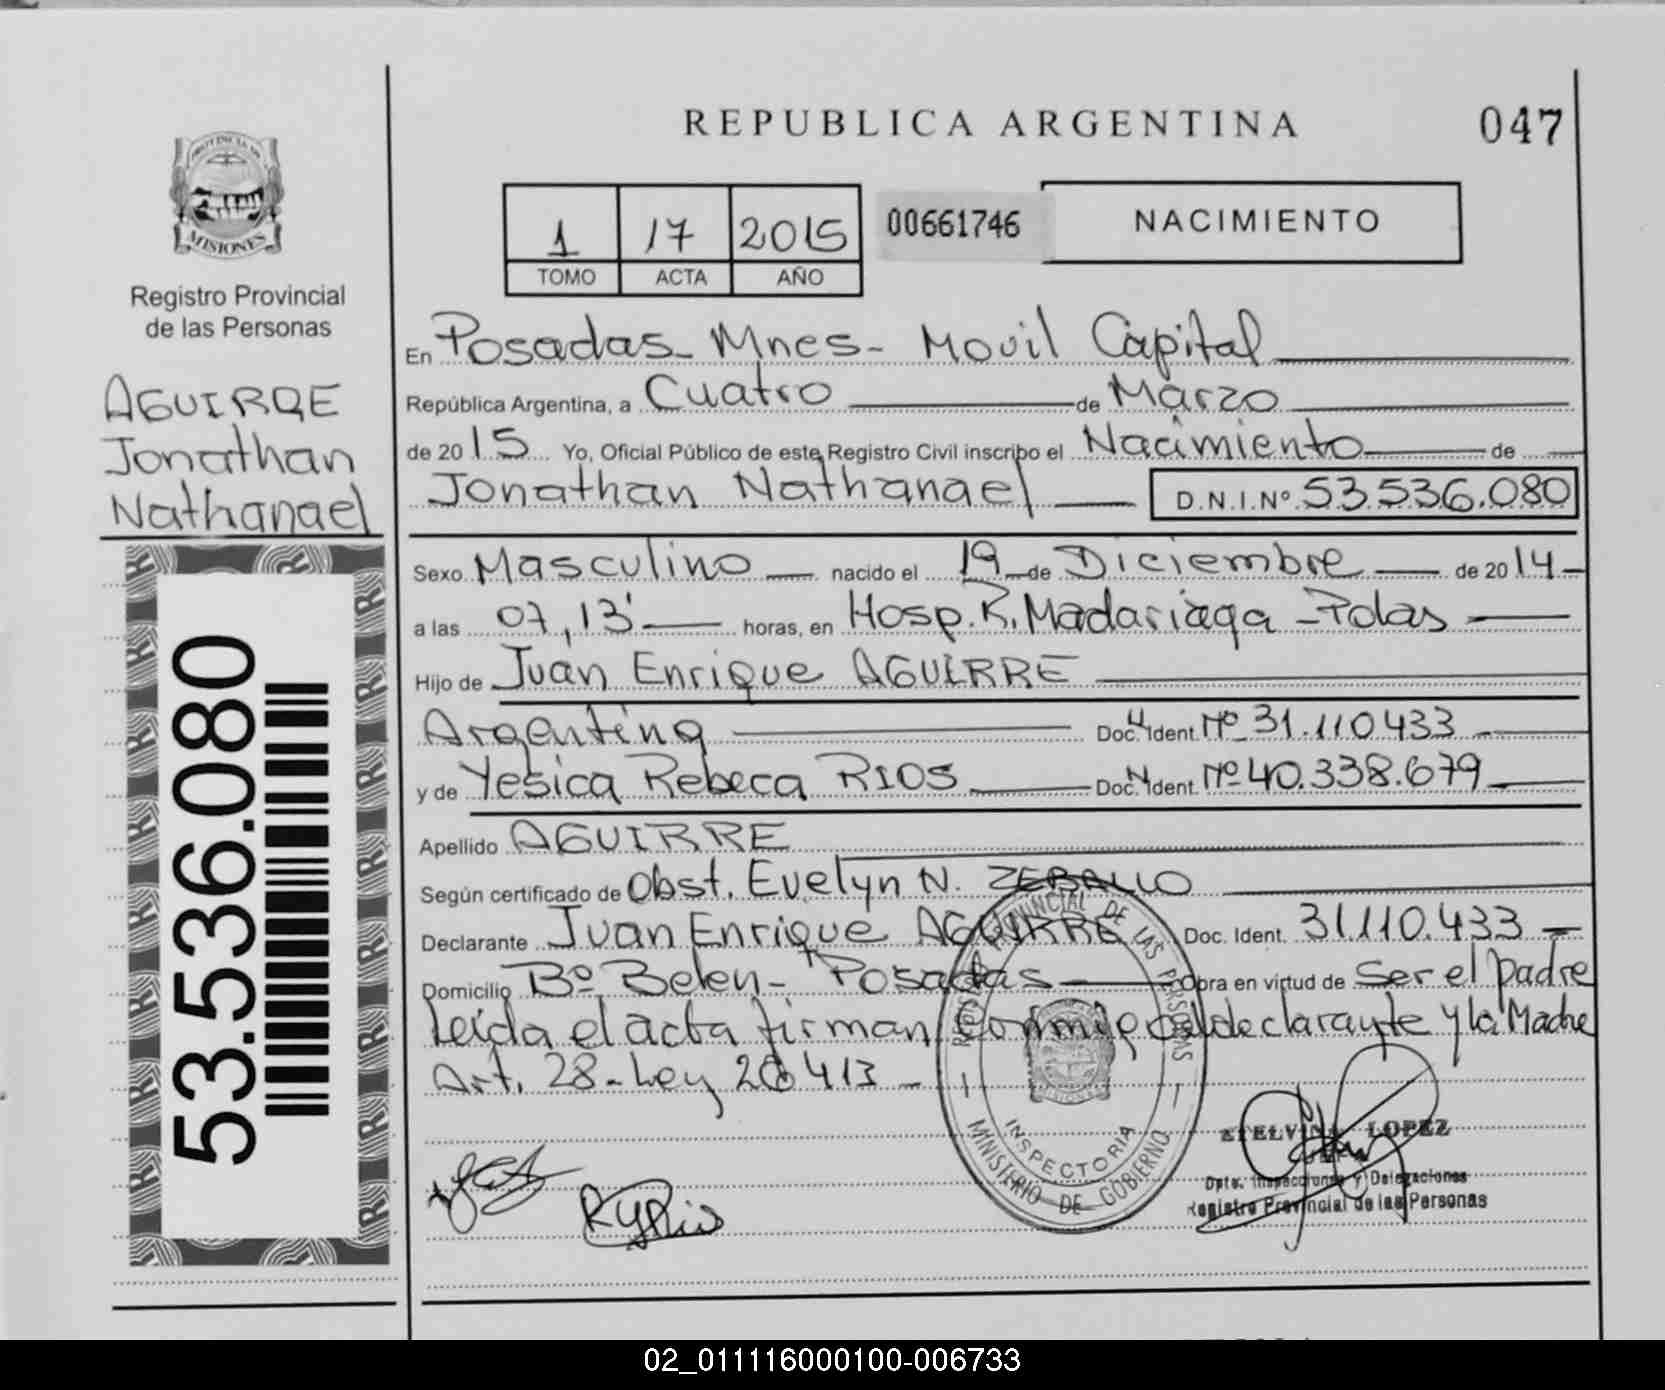 REPUBLICA ARGENTINA 047
PROVINCIA DE MISIONES
1 17 2015 00661746 NACIMIENTO
TOMO ACTA AÑO
Registro Provincial
de las Personas
AGUIRRE
Jonathan
Nathanael
53.536.080
En Posadas - Mnes - Movil Capital
República Argentina, a Cuatro de Marzo
de 2015 Yo, Oficial Público de este Registro Civil inscribo el Nacimiento de
Jonathan Nathanael D.N.I.Nº 53.536.080
Sexo Masculino nacido el 19 de Diciembre de 2014
a las 07,13' horas, en Hosp. R. Madariaga - Pdas
Hijo de Juan Enrique AGUIRRE
Argentina Doc. Ident. Nº 31.110.433
y de Yesica Rebeca RIOS Doc. Ident. Nº 40.338.679
Apellido AGUIRRE
Según certificado de Obst. Evelyn N. ZEBALLO
Declarante Juan Enrique AGUIRRE Doc. Ident. 31.110.433
Domicilio Bº Belen - Posadas Obra en virtud de Ser el padre
Leida el acta firman conmigo el declarante y la Madre
Art. 28 - Ley 26413 -
PROVINCIAL DE LAS PERSONAS
INSPECTORIA
MINISTERIO DE GOBIERNO
LOPEZ
Dpto. Inspecciones y Delegaciones
Registro Provincial de las Personas
02_011116000100-006733